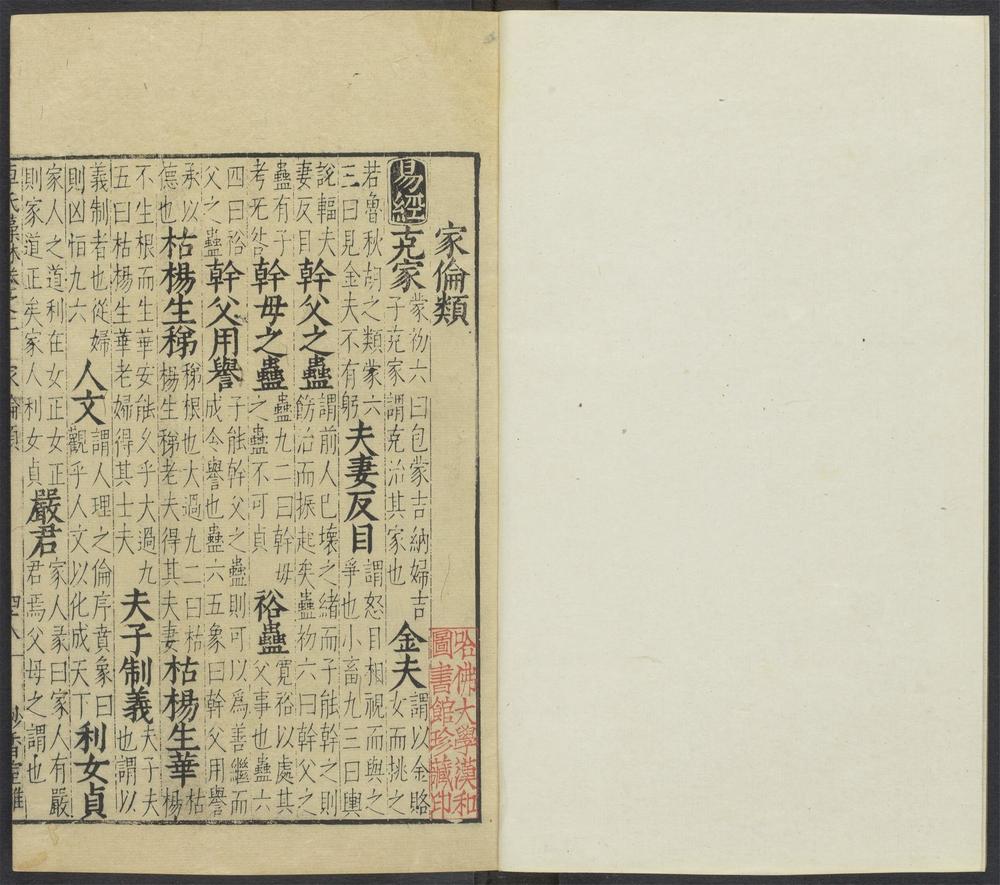 家倫類
易經
克家
蒙初六曰包蒙吉納婦吉
子克家謂克治其家也
金夫
謂以金賂
女而挑之
若魯秋胡之類蒙六
三曰見金夫不有躬
夫妻反目
謂怒目相視而與之
爭也小畜九三曰輿
說輻夫
妻反目
幹父之蠱
謂前人已壞之緒而子能幹之則
飭治而振起矣蠱初六曰幹父之
蠱有子
考无咎
幹母之蠱
蠱九二曰幹母
之蠱不可貞
裕蠱
寬裕以處其
父事也蠱六
四曰裕
父之蠱
幹父用譽
子能幹父之蠱則可以爲善繼而
成令譽也蠱六五象曰幹父用譽
承以
德也
枯楊生稊
稊根也大過九二曰枯
楊生稊老夫得其夫妻
枯楊生華
枯
楊
不生根而生華安能久乎大過九
五曰枯楊生華老婦得其士夫
夫子制義
夫子夫
也謂以
義制者也從婦
則凶恒九六
人文
謂人理之倫序賁象曰
觀乎人文以化成天下
利女貞
家人之道利在女正女正
則家道正矣家人利女貞
嚴君
家人彖曰家人有嚴
君焉父母之謂也
哈佛大學漢和
圖書館珍藏印